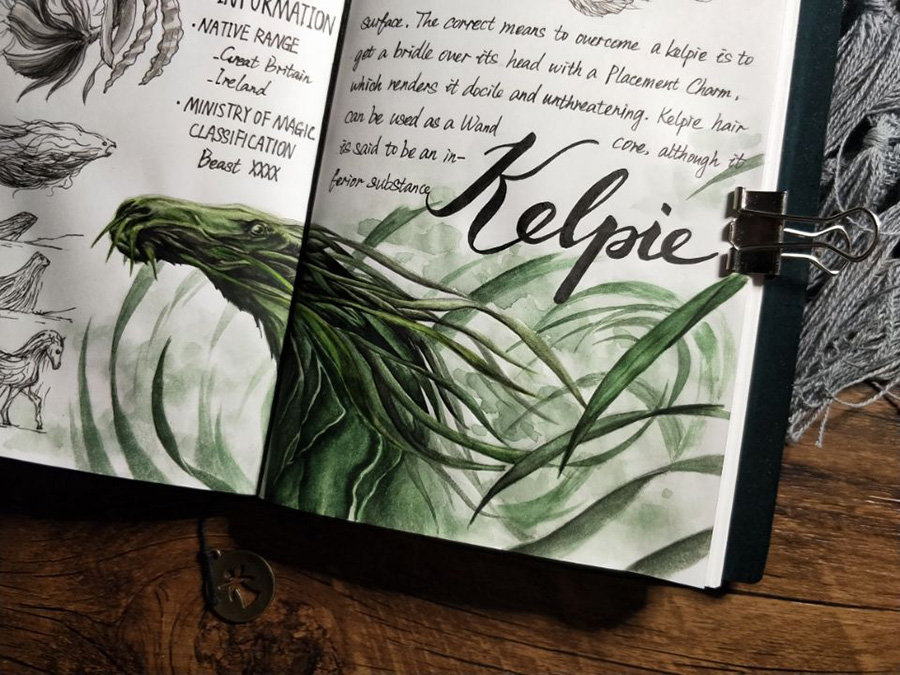 INFORMATION
· NATIVE RANGE
-Great Britain
-Ireland
· MINISTRY OF MAGIC
CLASSIFICATION
Beast XXXX
surface. The correct means to overcome a kelpie is to
get a bridle over its head with a Placement Charm,
which renders it docile and unthreatening. Kelpie hair
can be used as a Wand core, although it
is said to be an in-
ferior substance
Kelpie